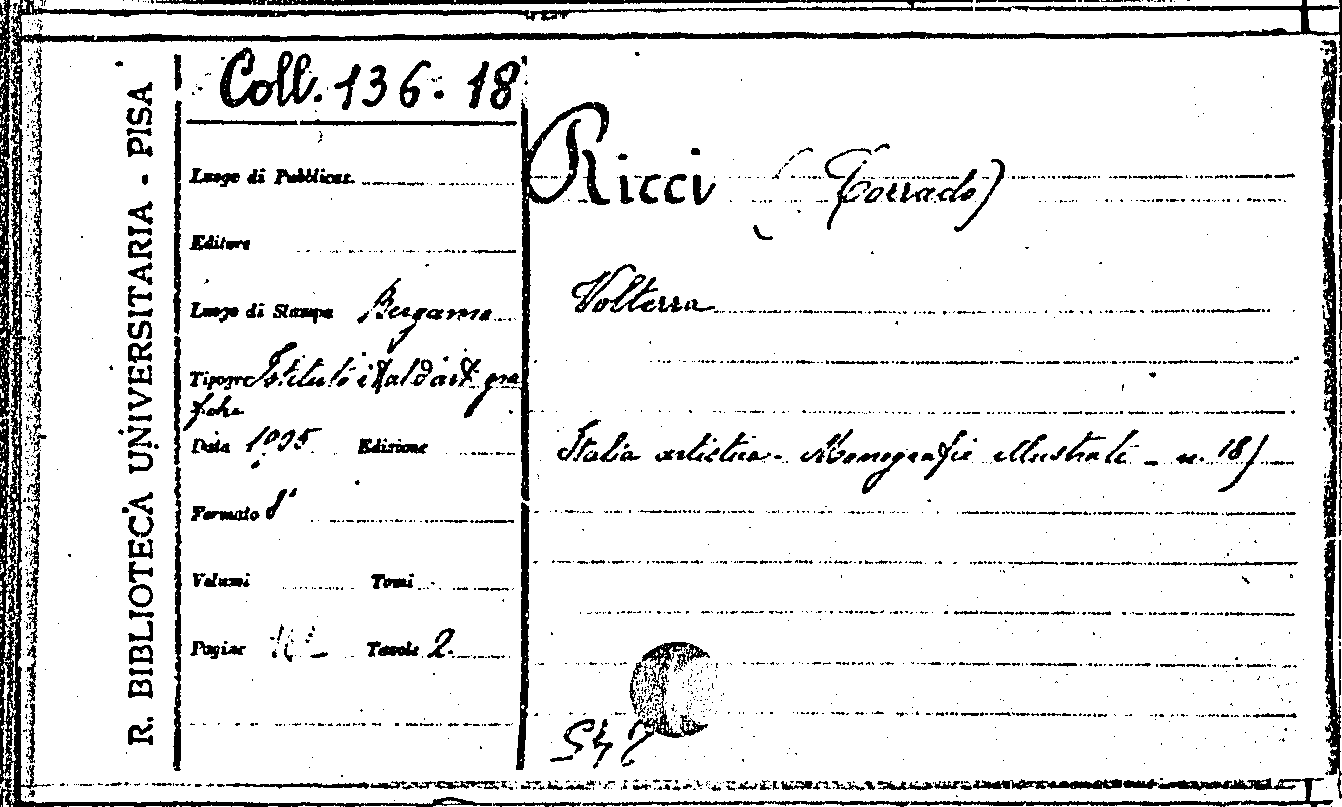 R. BIBLIOTECA UNIVERSITARIA - PISA
Coll. 136. 18
Ricci (Corrado)
Luogo di Pubblicaz.
Editore
Luogo di Stampa Bergamo
Volterra
Tipogr. Istituto ital d'art gra
fiche
Data 1905 Edizione
Italia artistica - Monografie illustrate - n. 18)
Formato 8°
Volumi Tomi
Pagine Tavole 2.